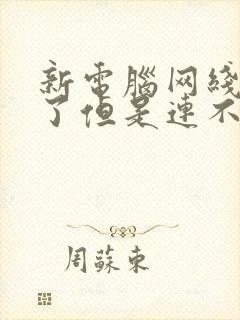 新電腦网綫
了但是連不
周蘇東